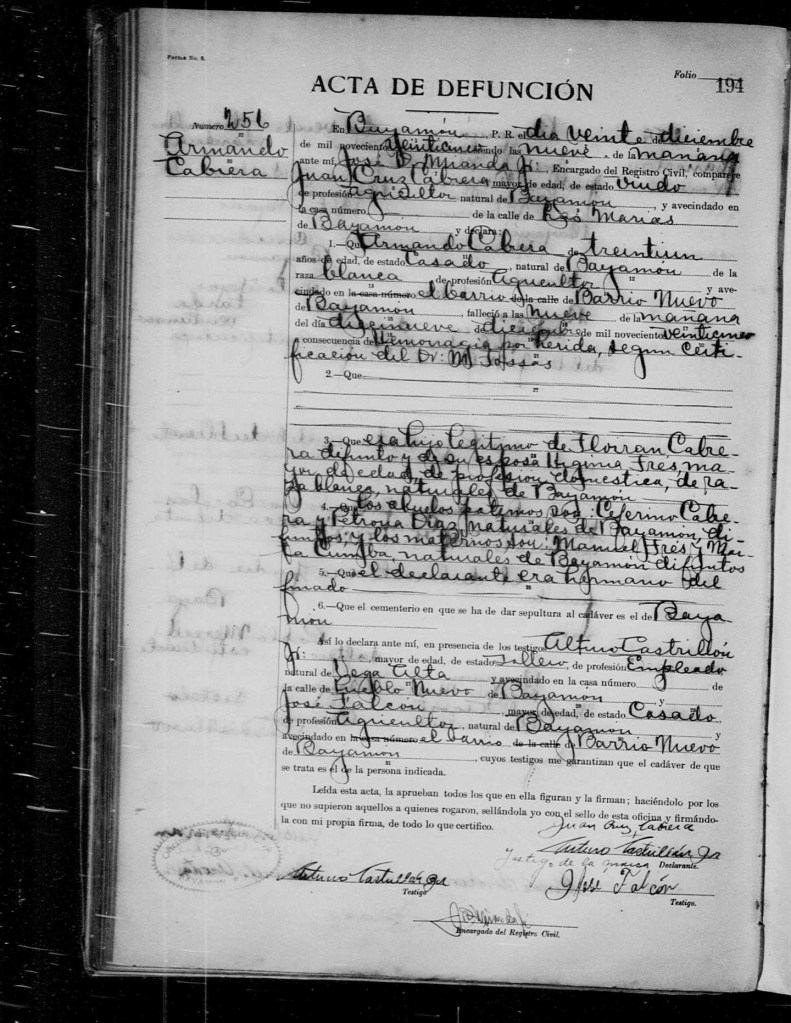 Forma No. 5.
Folio 194
ACTA DE DEFUNCIÓN
Número 256
Armando
Cabrera
En Bayamón, P. R. el día veinte de diciembre
de mil novecientos veinticinco siendo las nueve de la mañana
ante mí, José D. Miranda Jr., Encargado del Registro Civil, comparece
Juan Cruz Cabrera mayor de edad, de estado viudo
de profesión agricultor natural de Bayamón, y avecindado en
la casa número , de la calle de Marías
de Bayamón y declara:
1.—Que Armando Cabrera de treintiun
años de edad, de estado Casado, natural de Bayamón de la
raza blanca de profesión Agricultor y ave-
cindado en la casa número el barrio de la calle de Barrio Nuevo
de Bayamón, falleció a las nueve de la mañana
del día diecinueve de diciembre de mil novecientos veinticinco
a consecuencia de Hemorragia por herida, segun certi-
ficación del Dr: M. Tossas
2.—Que
3.—Que era hijo legitimo de Cabre-
ra difunto y de su esposa Higinia Fres, ma-
yor de edad, de profesión domestica, de ra-
za blanca, naturales de Bayamón
4.—Que los abuelos paternos son: Ceferino Cabre-
ra y Petrona Diaz, naturales de Bayamón, di-
funtos; y los maternos son: Manuel Fres y Ma-
naturales de Bayamón difuntos
5.—Que el declarante era hermano del
finado
6.—Que el cementerio en que se ha de dar sepultura al cadáver es el de Baya
món
Así lo declara ante mí, en presencia de los testigos Arturo Castrillón
Jr: , mayor de edad, de estado soltero, de profesión Empleado
natural de Vega Alta y avecindado en la casa número de
la calle de Pueblo Nuevo de Bayamón y
José Falcón mayor de edad, de estado Casado,
de profesión Agricultor, natural de Bayamón y
avecindado en la casa número el barrio de la calle de Barrio Nuevo
de Bayamón, cuyos testigos me garantizan que el cadáver de que
se trata es el de la persona indicada.
Leída esta acta, la aprueban todos los que en ella figuran y la firman; haciéndolo por los
que no supieron aquellos a quienes rogaron, sellándola yo con el sello de esta oficina y firmándo-
la con mi propia firma, de todo lo que certifico.
Juan Cruz Cabrera
Arturo Castrillón Jr
y testigo de la marca Declarante.
Arturo Castrillón Jr
José Falcón
Testigo
Testigo.
Encargado del Registro Civil.